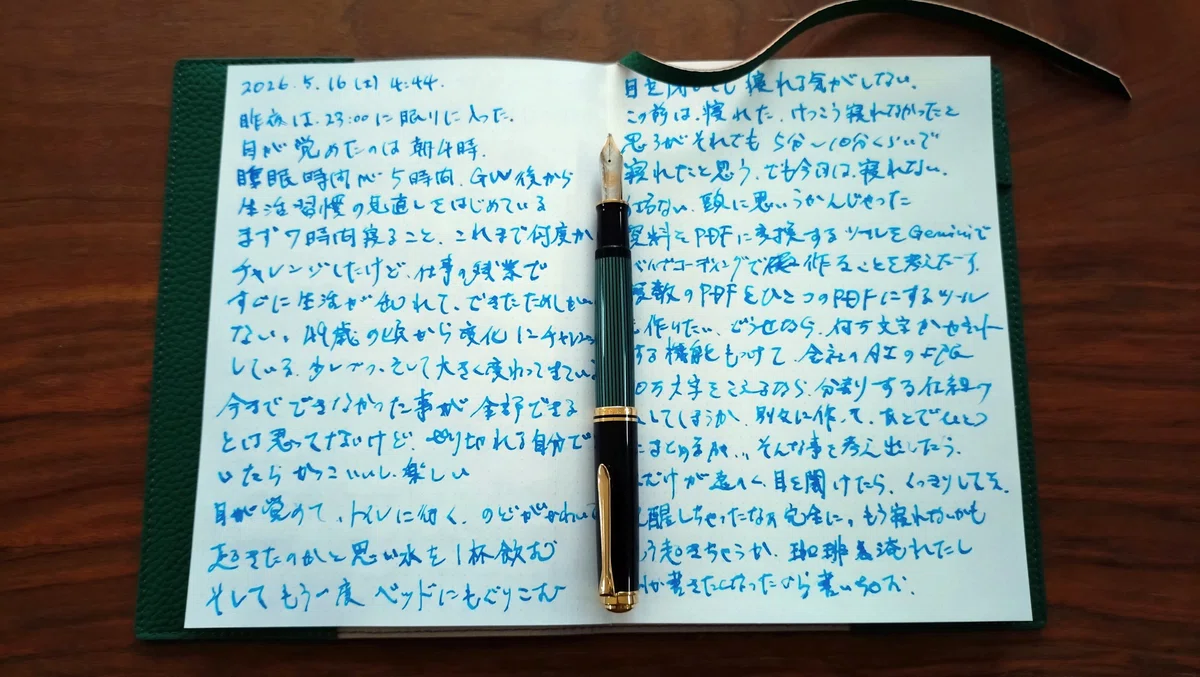 2026.5.16(土) 4:44.
昨夜は、23:00に眠りに入った.
目が覚めたのは 朝4時.
睡眠時間が5時間、GW後から
生活習慣の見直しをはじめている
まず7時間寝ること、これまで何度か
チャレンジしたけど、仕事の残業で
すぐに生活が乱れて、できたためしも
ない。49歳の頃から変化にチャレ
している、少しづつ、そして大きく変わって来ている
今までできなかった事が全部できる
とは思ってないけど、やり切れる自分で
いたらかっこいいし楽しい
目が覚めて、トイレに行く、のどがかわいて
起きたのかと思い水を1杯飲む
そしてもう一度ベッドにもぐりこむ
目を閉じても寝れる気がしない.
この前は、寝れた、けっこう寝れなかったと
思うがそれでも5分〜10分くらいで
寝れたと思う、でも今日は、寝れない.
ない、頭に思いうかんじゃった
資料をPDFに変換するツールをGeminiで
コーディングで作ることを考えたり、
複数のPDFをひとつのPDFにするツール
作りたい、どうせなら、何万文字かカウント
する機能もつけて、会社のAIの
0万文字をこえるなら、分割りする仕組
してしまうか、別々に作って、あとでひとつ
にまとめるか、、そんな事を考え出したら、
だけが遠のく、目を開けたら、くっきりして
醒しちゃったなぁ 完全に、もう寝れないかも
もう起きちゃうか、珈琲を淹れたし
書きたくなったから書いちゃお.